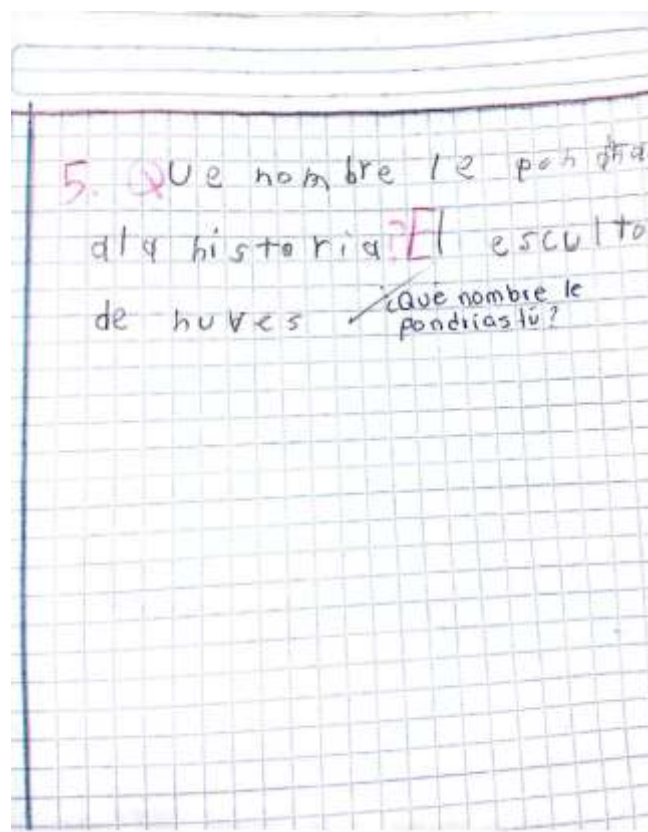 5. Que nombre le pondria
ala historia? El esculto
de nuves
¿Qué nombre le
pondrias tú?